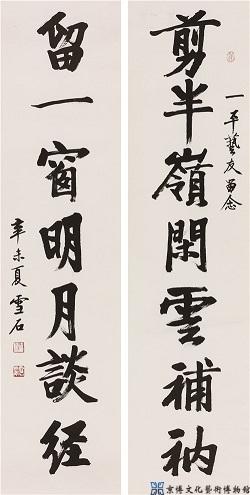 剪半嶺閑雲補衲
一平藝友留念
留一窗明月談经
辛未夏雪石
京博文化藝術博物館